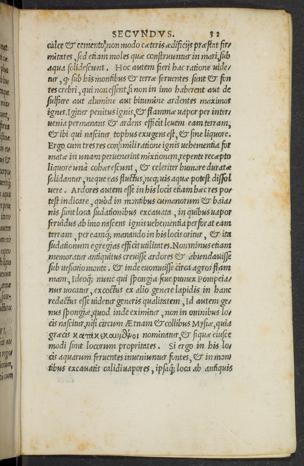 SECVNDVS. 32
calce & cemento, non modo cæteris ædificijs præstat fir
mitates, sed etiam moles quæ construuntur in mari, sub
aqua solidescunt. Hoc autem fieri hac ratione uide/
tur, q̃ sub his montibus & terræ feruentes sunt & fon
tes crebri, qui non essent, si non in imo haberent aut de
sulfure aut alumine aut bitumine ardentes maximos
ignes. Igitur penitus ignis, & flammæ uapor per inter
uenia permanans & ardens efficit leuem eam terram,
& ibi qui nascitur tophus exugens est, & sine liquore.
Ergo cum tres res consimili ratione ignis uehementia for
matæ in unam peruenerint mixtionem, repente recepto
liquore una cohærescunt, & celeriter humore duratæ
solidantur, neque eas fluctus, neq; uis aquæ potest dissol
uere. Ardores autem esse in his locis etiam hæc res po/
test indicare, quod in montibus cumanorum & baia/
nis sunt loca sudationibus excauata, in quibus uapor
feruidus ab imo nascens ignis uehementia perforat eam
terram, per eamq; manando in his locis oritur, & ita
sudationum egregias efficit utilitates. Non minus etiam
memoratur antiquitus creuisse ardores & abundauisse
sub uesuuio monte, & inde euomuisse circa agros flam
mam, Ideoq; nunc qui spongia siue pumex Pompeia/
nus uocatur, excoctus ex alio genere lapidis in hanc
redactus esse uidetur generis qualitatem, Id autem ge
nus spongiæ, quod inde eximitur, non in omnibus lo/
cis nascitur, nisi circum Ætnam & collibus Mysiæ, quia
græcis κατακεκαυμένοι nominatur, & siquæ eiusce
modi sunt locorum propritates. Si ergo in his lo/
cis aquarum feruentes inueniuntur fontes, & in mon
tibus excauatis calidi uapores, ipsaq; loca ab antiquis